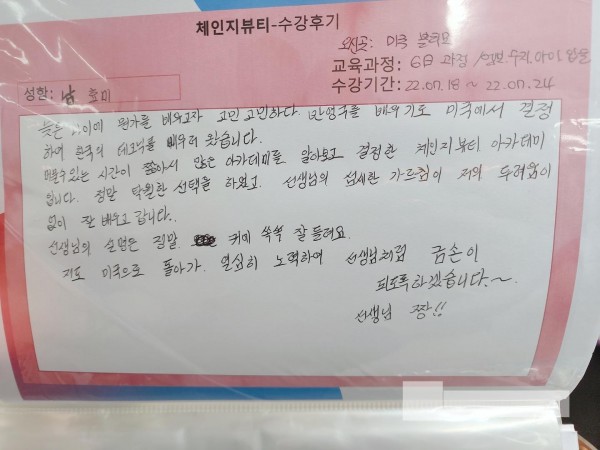 체인지뷰티-수강후기
오신곳: 미국 블러요
교육과정: 6일 과정 /
수강기간: 22.07.18 ~ 22.07.24
성한: 남 호미
늦은 나이에 뭔가를 배우고자 고민 고민하다. 반영구를 배우기로 미국에서 결정
하여 한국의 테크닉을 배우러 왔습니다.
머물수 있는 시간이 짧아서 많은 아카데미를 알아보고 결정한 체인지뷰티 아카데미
입니다. 정말 탁월한 선택을 하였고. 선생님의 섬세한 가르침이 저의 두려움이
없이 잘 배우고 갑니다.
선생님의 설명은 정말 귀에 쏙쏙 잘 들려요.
저도 미국으로 돌아가. 열심히 노력하여 선생님처럼 금손이
되도록하겠습니다.~
선생님 짱!!